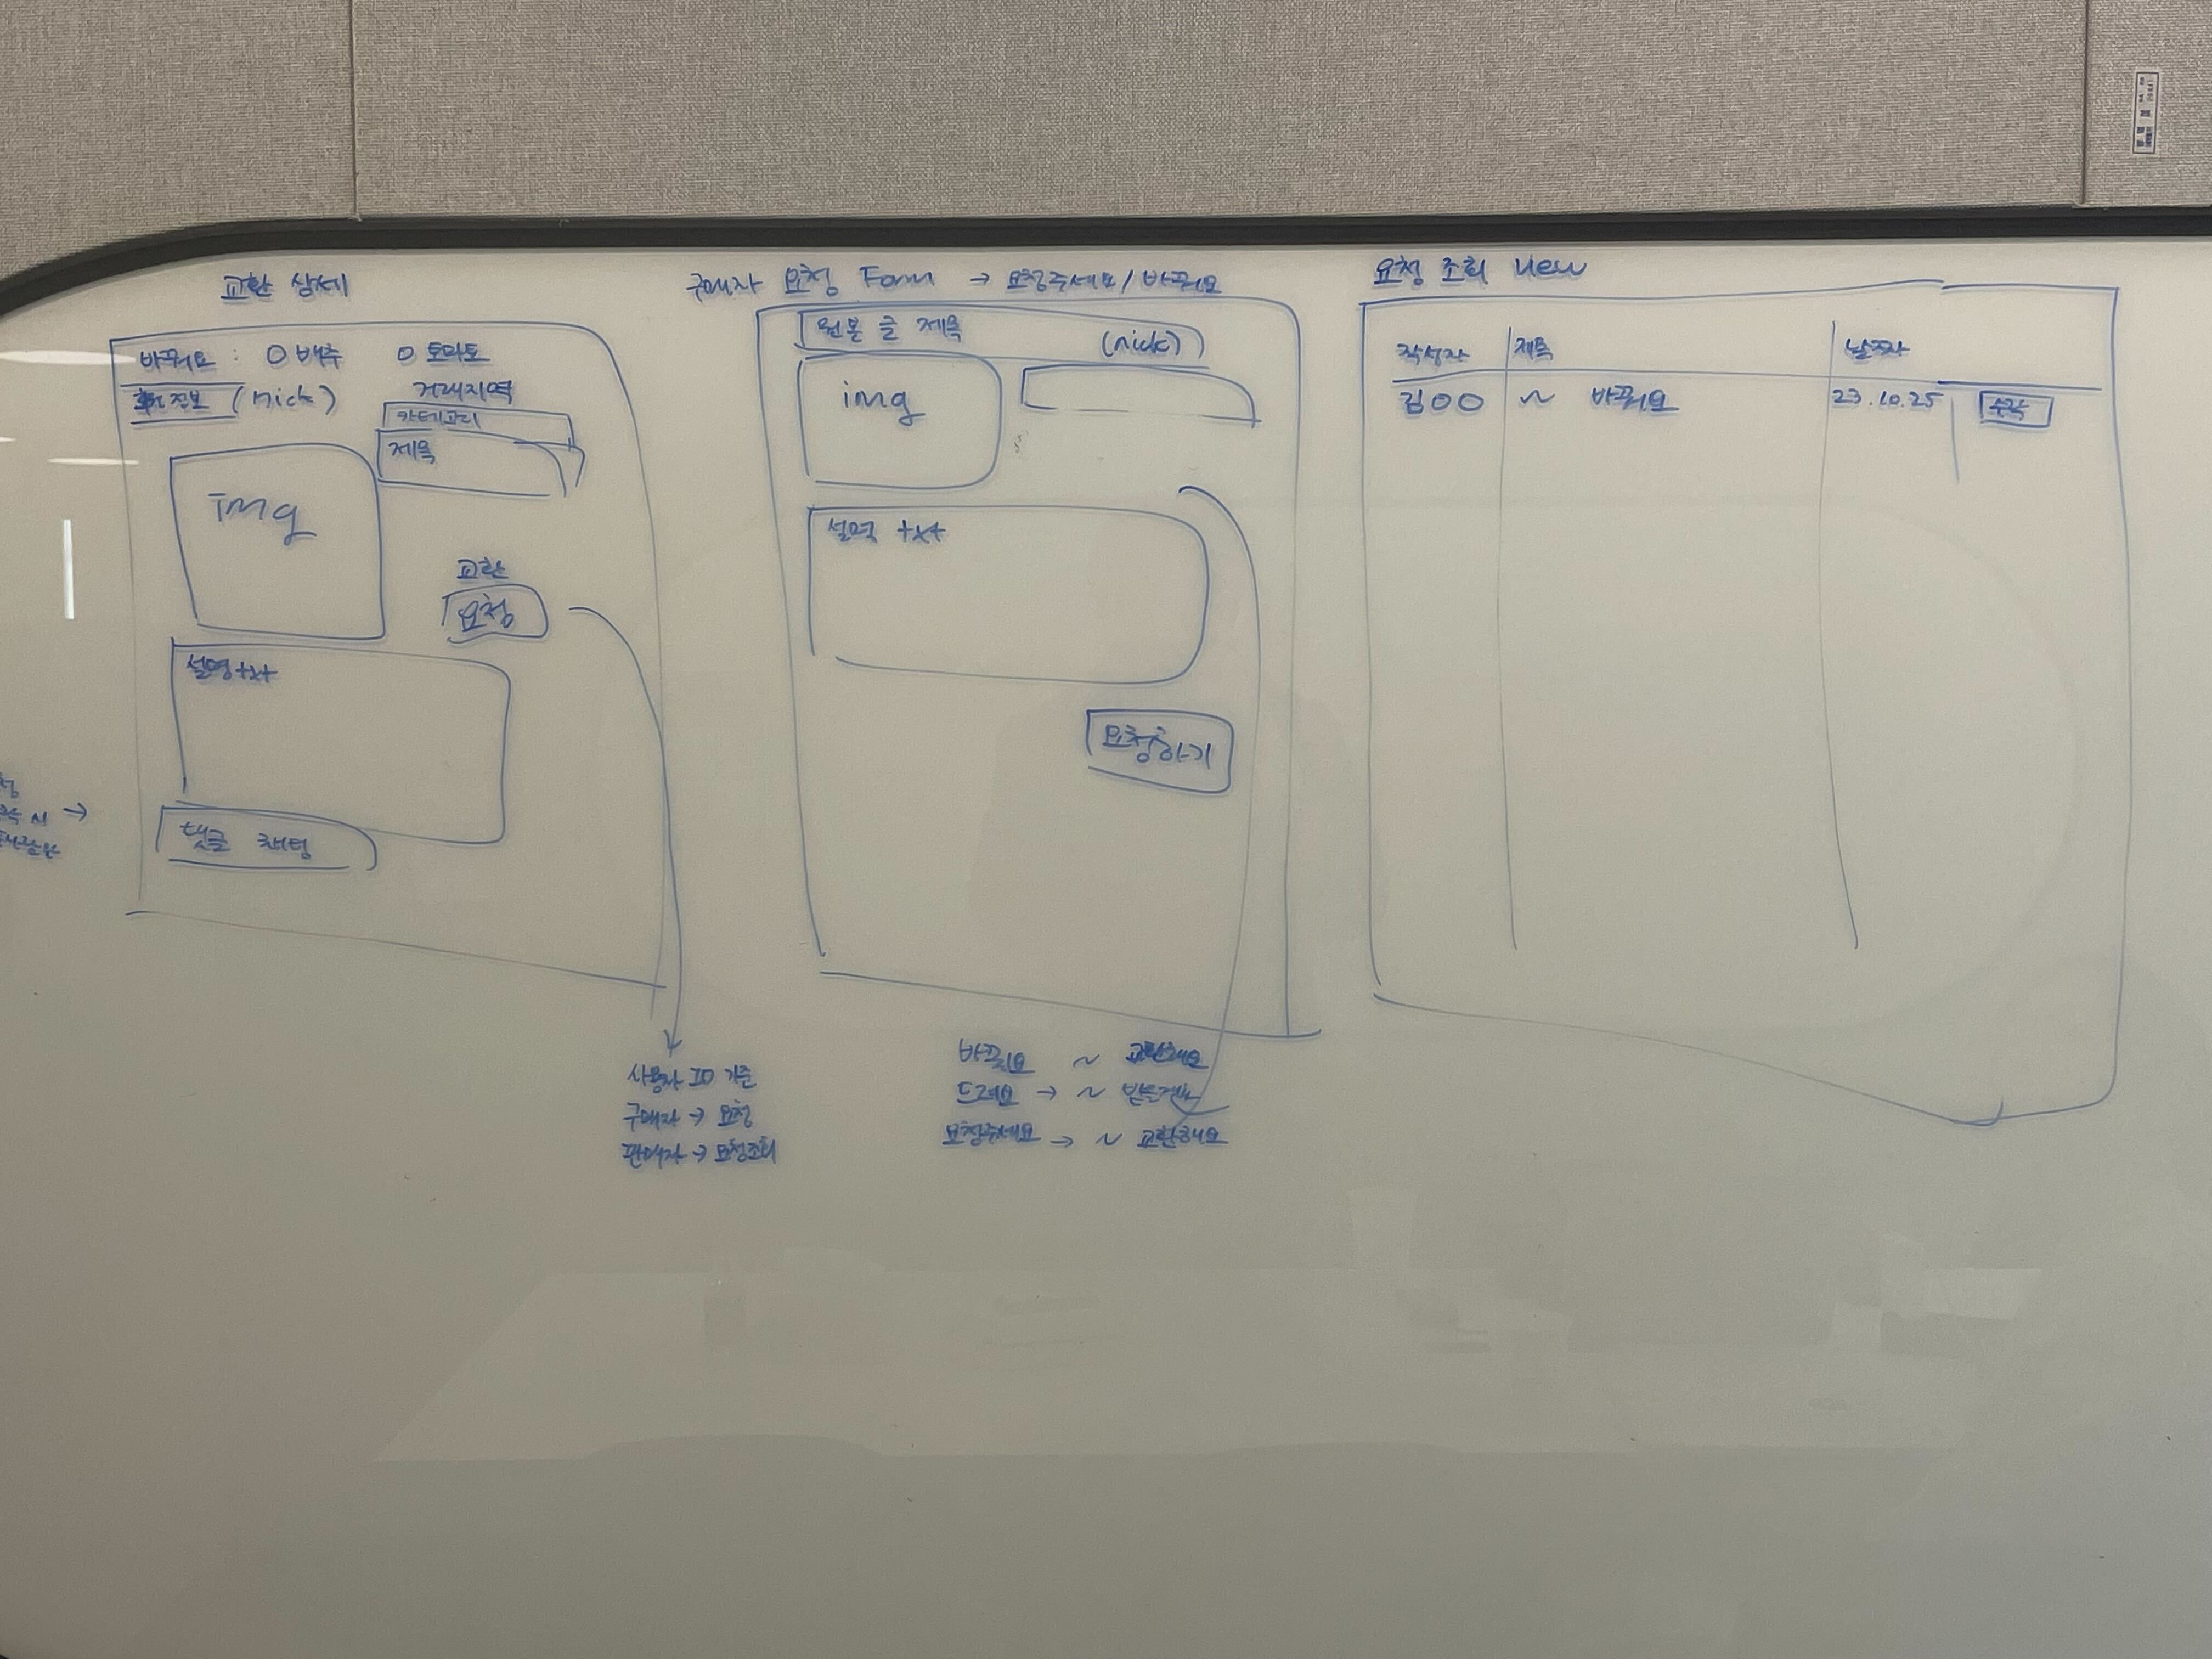 교환 상세
바꿔요 : O 배추 O 토마토
정보 (nick) 거래지역
카테고리
제목
img
교환
요청
설명 txt
댓글 채팅
사용자 ID 기준
구매자 → 요청
판매자 → 요청조회
구매자 요청 Form → 요청주세요/바꿔요
원본 글 제목 (nick)
img
설명 txt
요청하기
바꿔요 ~ 교환해요
드려요 → ~ 받을게요
요청주세요 → ~ 교환해요
요청 조회 View
작성자 제목 날짜
김OO ~ 바꿔요 23.10.25 수락